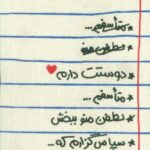 متأسفم...
لطفن منو
دوستت دارم
متأسفم...
لطفن منو ببخش
سپاس گزارم که...